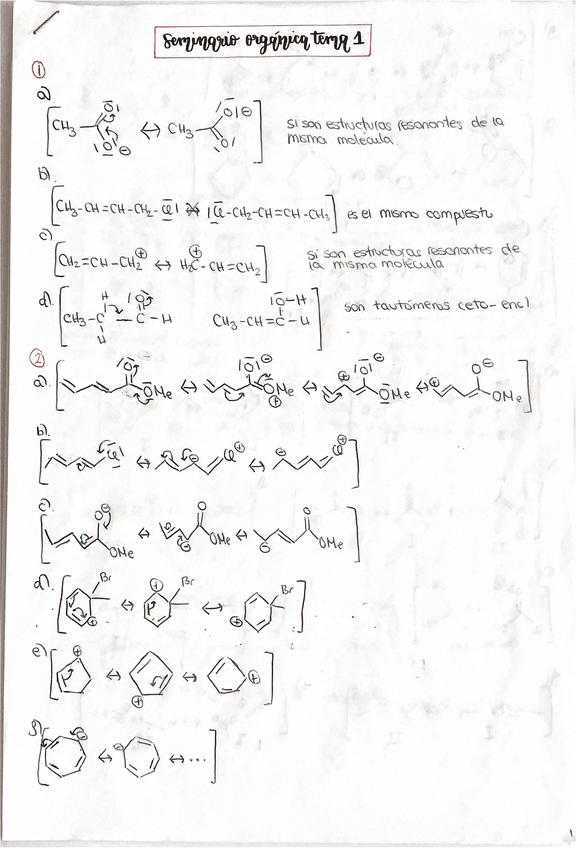 Seminario orgánica tema 1
①
a)
CH₃ |O| |O|⊖ ↔ CH₃ |O|⊖ |O|
si son estructuras resonantes de la
misma molécula.
b)
[CH₃-CH=CH-CH₂-Cl| ↔ |Cl-CH₂-CH=CH-CH₃] es el mismo compuesto
c)
[CH₂=CH-CH₂⊕ ↔ H₂C⊕-CH=CH₂]
si son estructuras resonantes de
la misma molécula
d)
H |O| |O-H
CH₃-C-C-H CH₃-CH=C-H
H
son tautómeros ceto-enol
②
a) |O| OMe ↔ |O|⊖ OMe ⊕ ↔ ⊕ |O|⊖ OMe ↔ ⊕ O⊖ OMe
b) Cl| ↔ ⊖ Cl⊕ ↔ ⊖ Cl⊕
c) O⊖ OMe ↔ O ⊖ OMe ↔ ⊖ O OMe
d) Br ⊕ ↔ ⊕ Br ↔ ⊕ Br
e) ⊕ ↔ ⊕ ↔ ⊕
f) ⊖ ↔ ⊖ ↔ ...
1